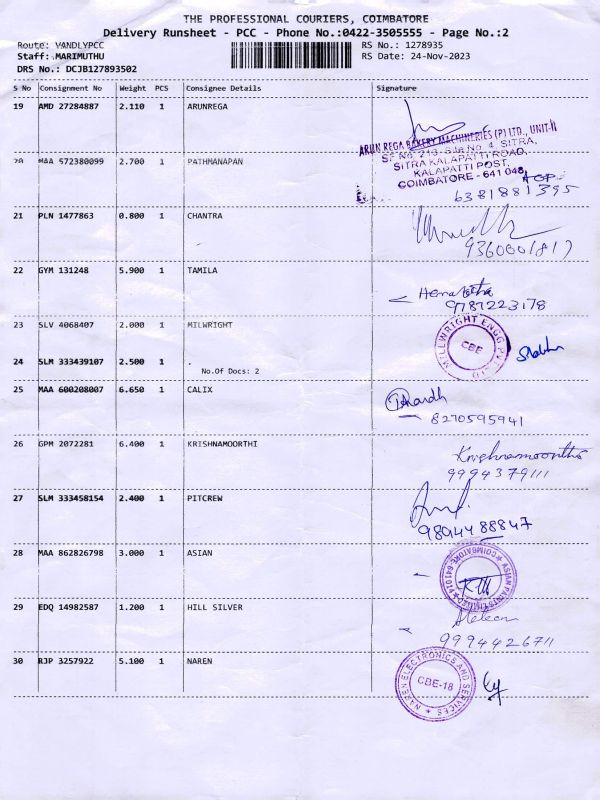 THE PROFESSIONAL COURIERS, COIMBATORE
Delivery Runsheet - PCC - Phone No.:0422-3505555 - Page No.:2
Route: VANDLYPCC RS No.: 1278935
Staff: MARIMUTHU RS Date: 24-Nov-2023
DRS No.: DCJB127893502
S No Consignment No Weight PCS Consignee Details Signature
19 AMD 27284887 2.110 1 ARUNREGA
ARUN REGA BAKERY MACHINERIES (P) LTD., UNIT-II
SF No. 213, Site No. 4, SITRA,
20 MAA 572380099 2.700 1 PATHMANAPAN SITRA KALAPATTI ROAD,
KALAPATTI POST,
COIMBATORE - 641 048
6381881395
21 PLN 1477863 0.800 1 CHANTRA
9360001817
22 GYM 131248 5.900 1 TAMILA
9787223178
23 SLV 4068407 2.000 1 MILWRIGHT MILLWRIGHT ENGG PVT LTD
CBE
24 SLM 333439107 2.500 1 .
No.Of Docs: 2
25 MAA 600208007 6.650 1 CALIX
8270595941
26 GPM 2072281 6.400 1 KRISHNAMOORTHI Krishnamoorthi
9994379111
27 SLM 333458154 2.400 1 PITCREW
9894488847
28 MAA 862826798 3.000 1 ASIAN ASIAN PAINTS LIMITED COIMBATORE
29 EDQ 14982587 1.200 1 HILL SILVER
9994426711
30 RJP 3257922 5.100 1 NAREN NAREN ELECTRONICS AND SERVICES
CBE-18